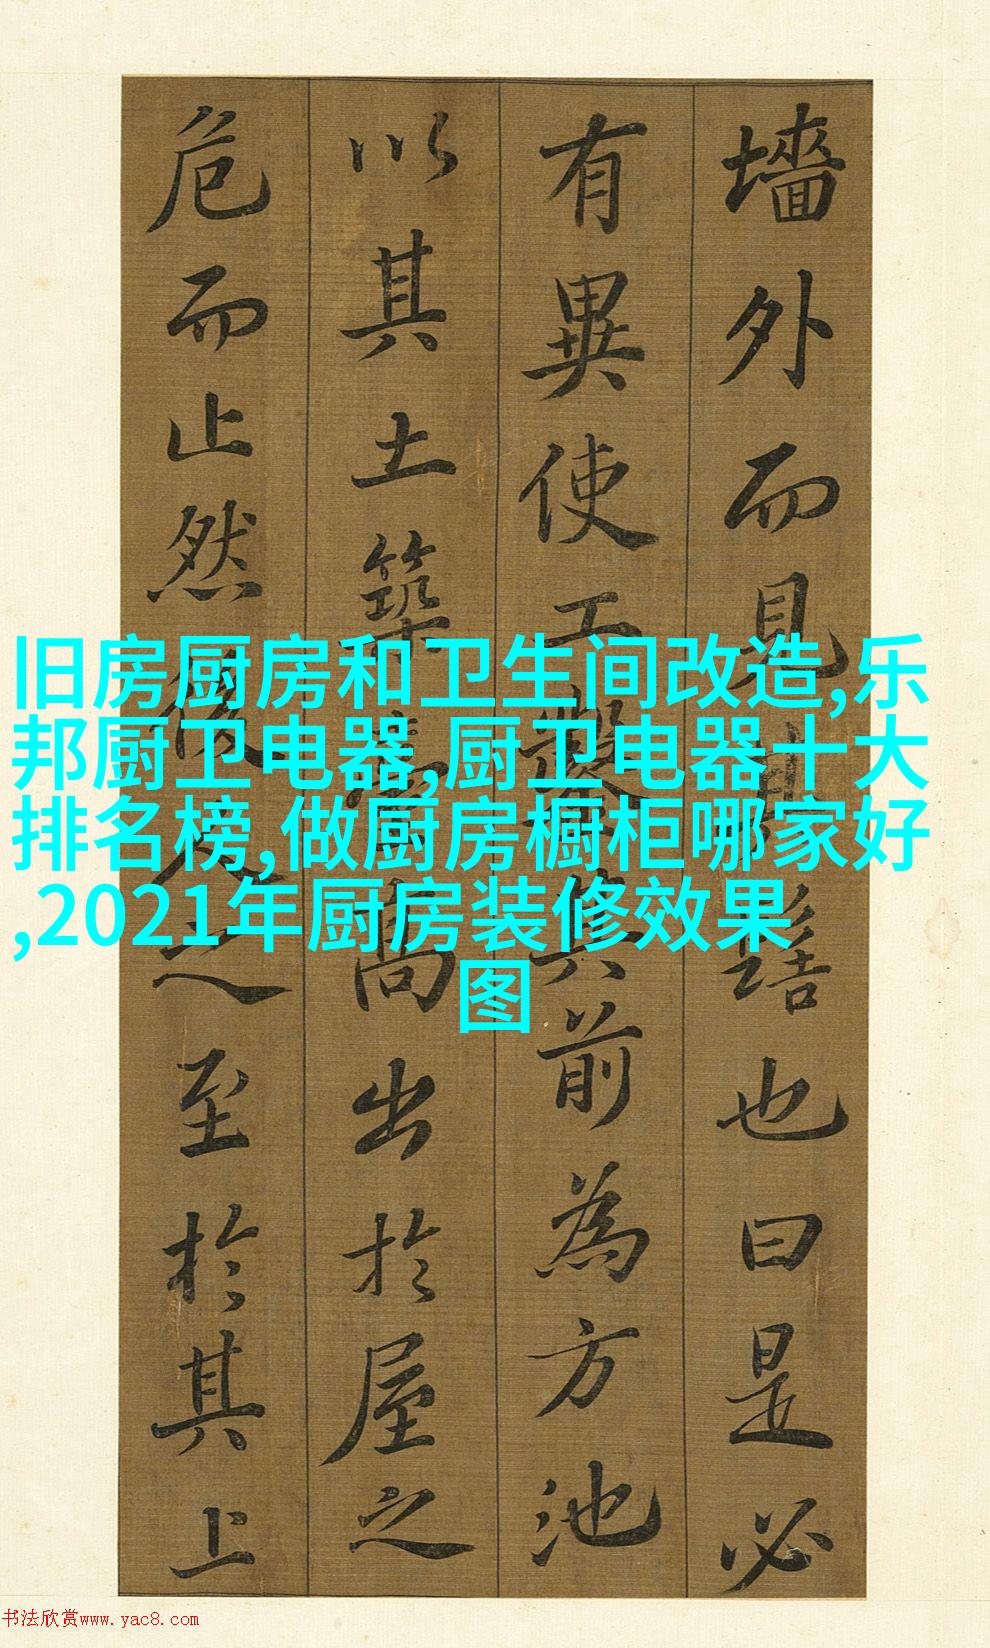 墻外而見其髻也曰是必
有異使工鑿其前為方池
以其土築臺高出於屋之
危而止然後人之至於其上
旧房厨房和卫生间改造,乐
邦厨卫电器,厨卫电器十大
排名榜,做厨房橱柜哪家好
,2021年厨房装修效果
图
书法欣赏www.yac8.com